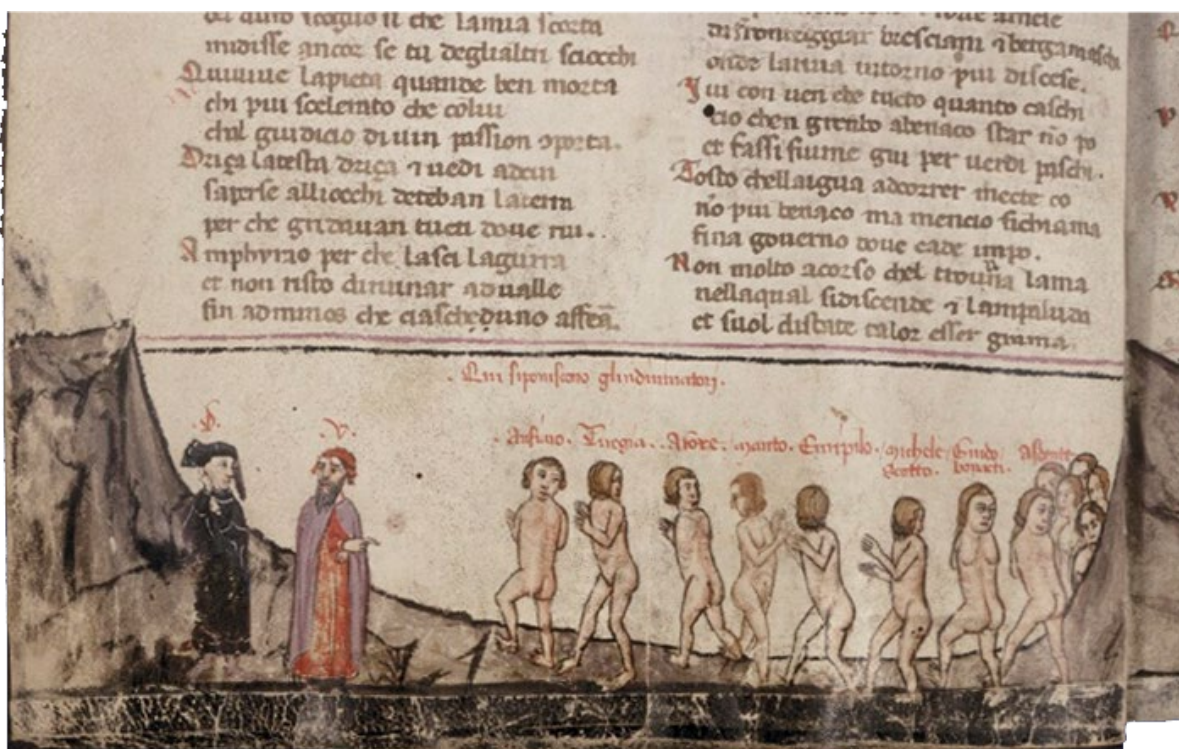 scoglio si che lamia scorta
midisse ancor se tu deglialtri sciocchi
Quiuiue lapieta quande ben morta
chi piu scelerato che colui
chal giudicio diuin passion ꝯporta.
Driça latesta driça ⁊ uedi adcui
saperse alliocchi deteban laterra
per che gridauan tucti doue rui..
Amphyrao per che lasci laguerra
et non risto diruinar aualle
fin adminos che ciascheduno afferā.
da fronteggiar bresciani ⁊ bergamaschi
onde lariua intorno piu discese.
Iui conuen che tucto quanto caschi
cio chen grenbo abenaco star nō po
et fassi fiume giu per uerdi paschi.
Tosto chellaigua adcorrer mecte co
nō piu benaco ma mencio sichiama
fina gouerno doue cade inpo.
Non molto acorso chel troua una lama
nellaqual sidiscende ⁊ lampaluda
et suol distate talor esser grama.
. Qui siponiscono glindiuinatori.
.D. .V. . Anfirao. Tiresia. Arōte. manto. Euripilo. michele scotto. Guido bonacti. Asdente